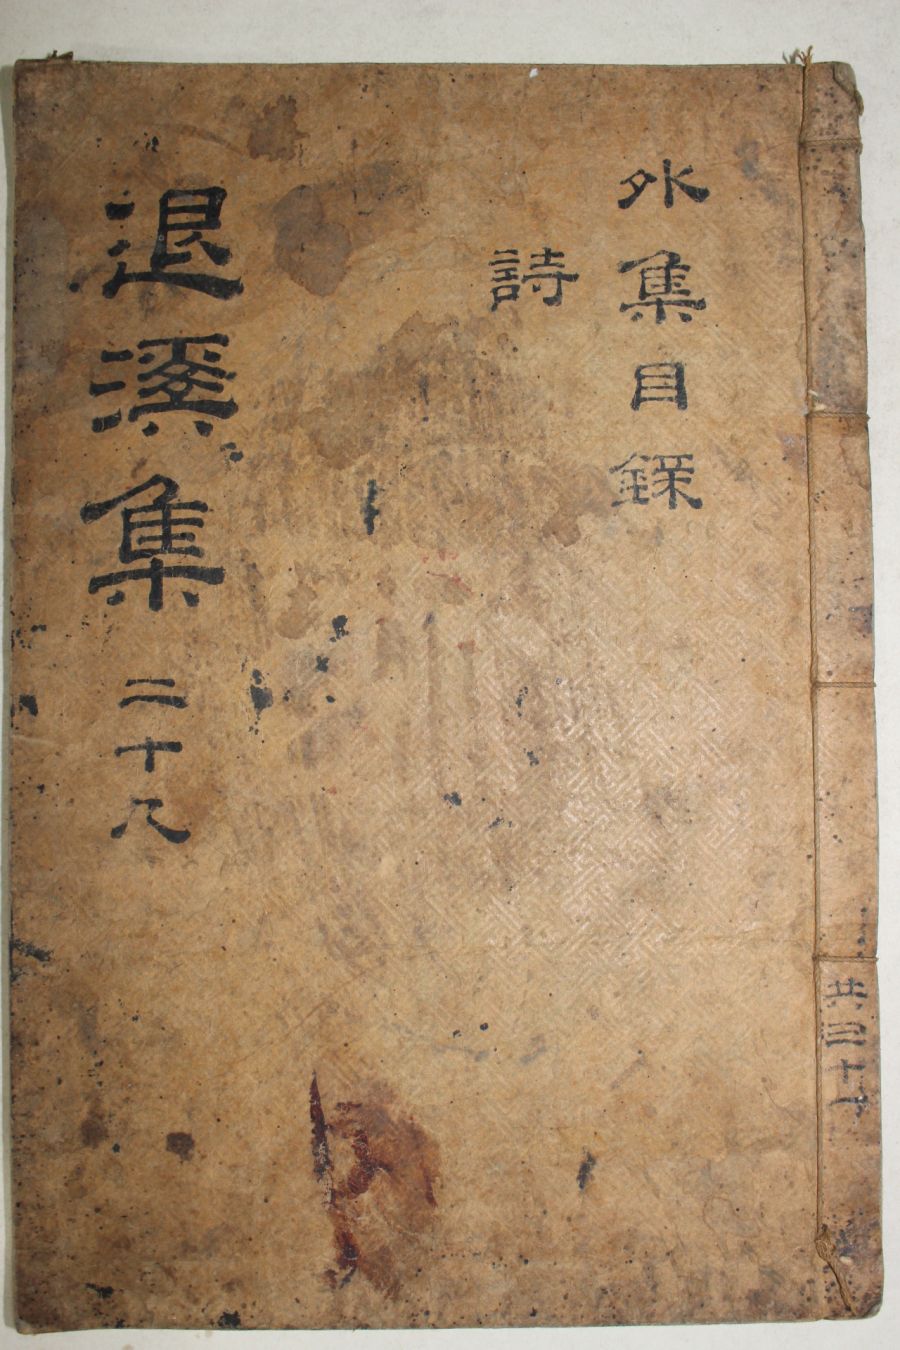 外集目錄
詩
退溪集 二十九
共三十